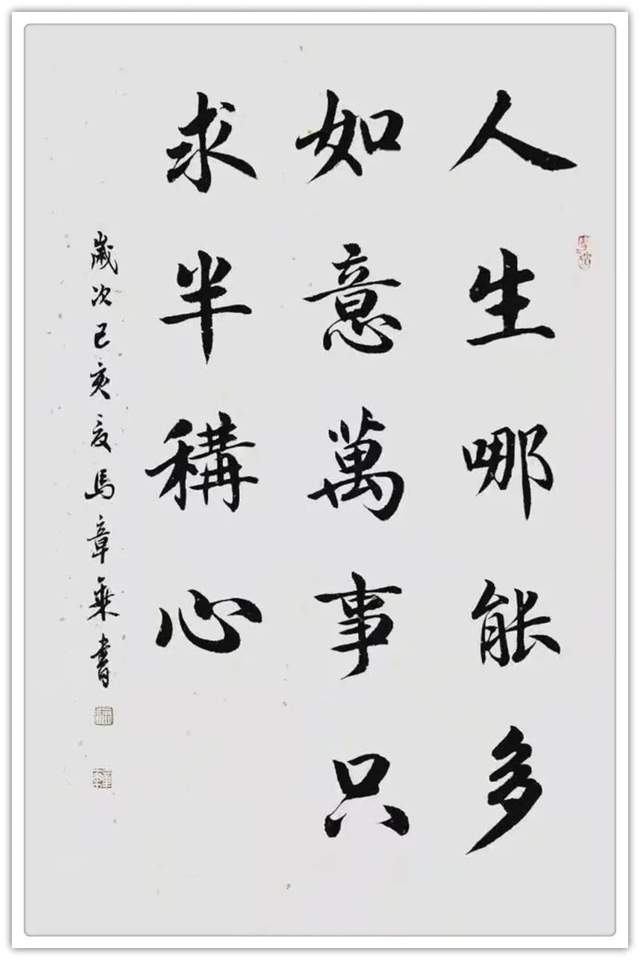 人生哪能多
如意萬事只
求半稱心
歲次己亥夏馬章乘書